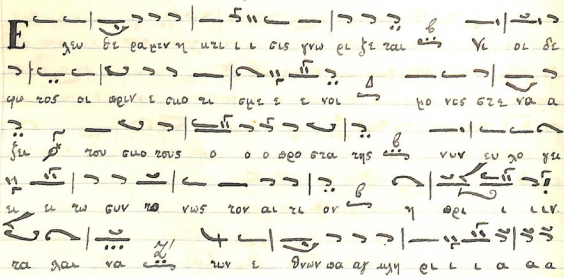 Ε λεω δε ραμεν η κτι ι ι σις γνω ρι ζε ται β Υι οι δε
φω τος οι πριν ε σκο τι σμε ε ε νοι Δ μο νος στε να α
ζει του σκο τους ο ο ο προ στα της β νυν ευ λο γει
ει ει τω συν το νως τον αι τι ον β η πρι ι ι ιν
τα λαι να Ζ των ε θνων πα αγ κλη ρι ι ι α α α